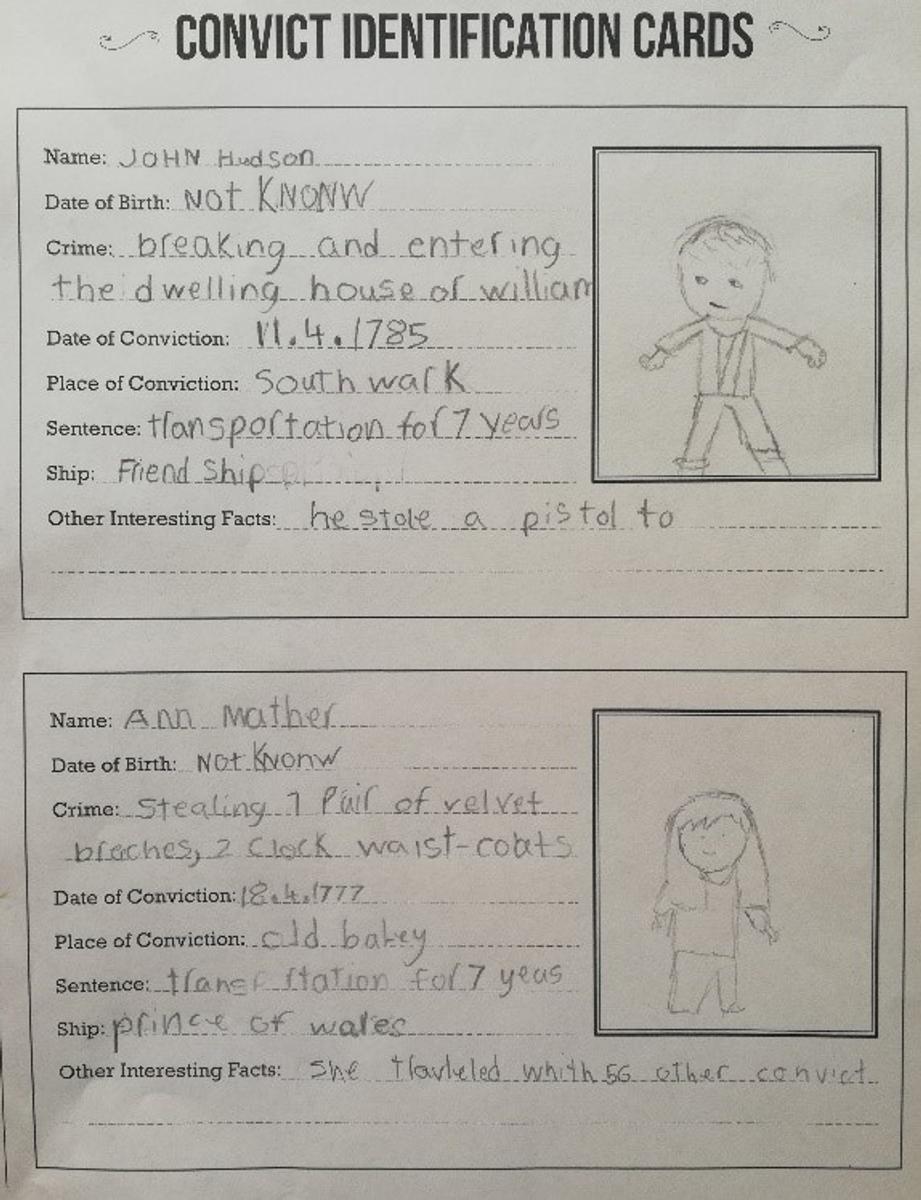 CONVICT IDENTIFICATION CARDS
Name: JOHN Hudson
Date of Birth: Not KNONW
Crime: breaking and entering
the dwelling house of william
Date of Conviction: 11.4.1785
Place of Conviction: South wark
Sentence: transportation for 7 years
Ship: Friend Ship
Other Interesting Facts: he stole a pistol to
Name: Ann Mather
Date of Birth: Not Knonw
Crime: Stealing 1 Pair of velvet
braches, 2 Clock waist-coats
Date of Conviction: 18.4.1777
Place of Conviction: old bailey
Sentence: transportation for 7 yeas
Ship: prince of wales
Other Interesting Facts: She travleled whith 56 other convict